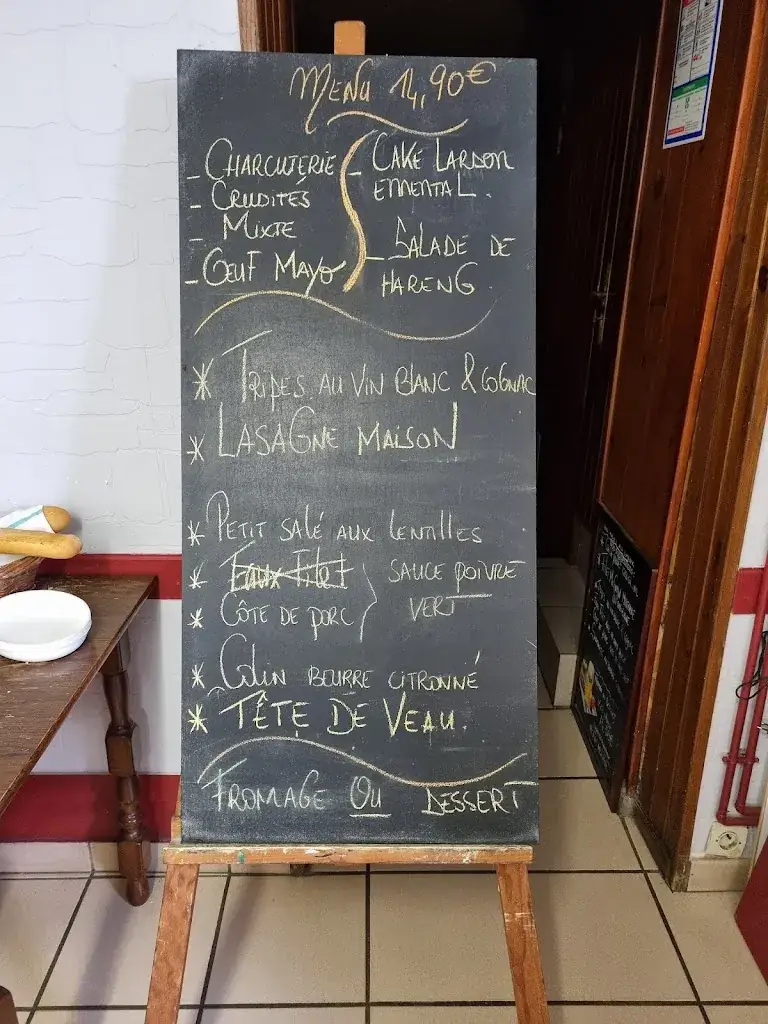 MENU 14,90€
- CHARCUTERIE
- CRUDITÉS
- MIXTE
- OEUF MAYO
- CAKE LARDON
EMMENTAL.
- SALADE DE
HARENG.
* TRIPES AU VIN BLANC & COGNAC
* LASAGNE MAISON
* PETIT SALÉ AUX LENTILLES
* FAUX FILET
* CÔTE DE PORC
SAUCE POIVRE
VERT
* COLIN BEURRE CITRONNÉ
* TÊTE DE VEAU.
FROMAGE OU DESSERT